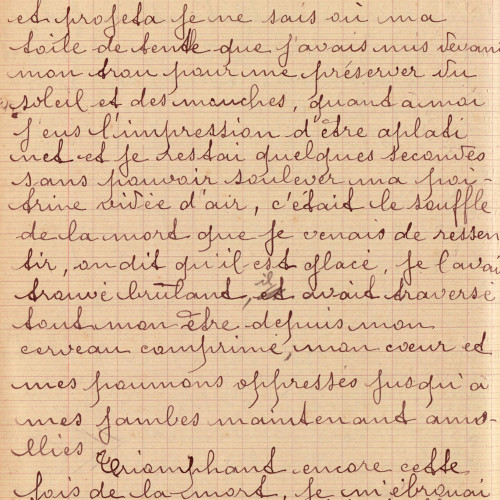 et projeta je ne sais où ma
toile de tente que j'avais mis devant
mon trou pour me préserver du
soleil et des mouches, quant à moi
j'eus l'impression d'être aplati
net et je restai quelques secondes
sans pouvoir soulever ma poi-
trine vidée d'air, c'était le souffle
de la mort que je venais de ressen
tir, on dit qu'il est glacé, je l'avai
trouvé brûlant, il avait traversé
tout mon être depuis mon
cerveau comprimé, mon coeur et
mes poumons oppressés jusqu'à
mes jambes maintenant amo-
llies
Triomphant encore cette
fois de la mort, je m'ébrouai